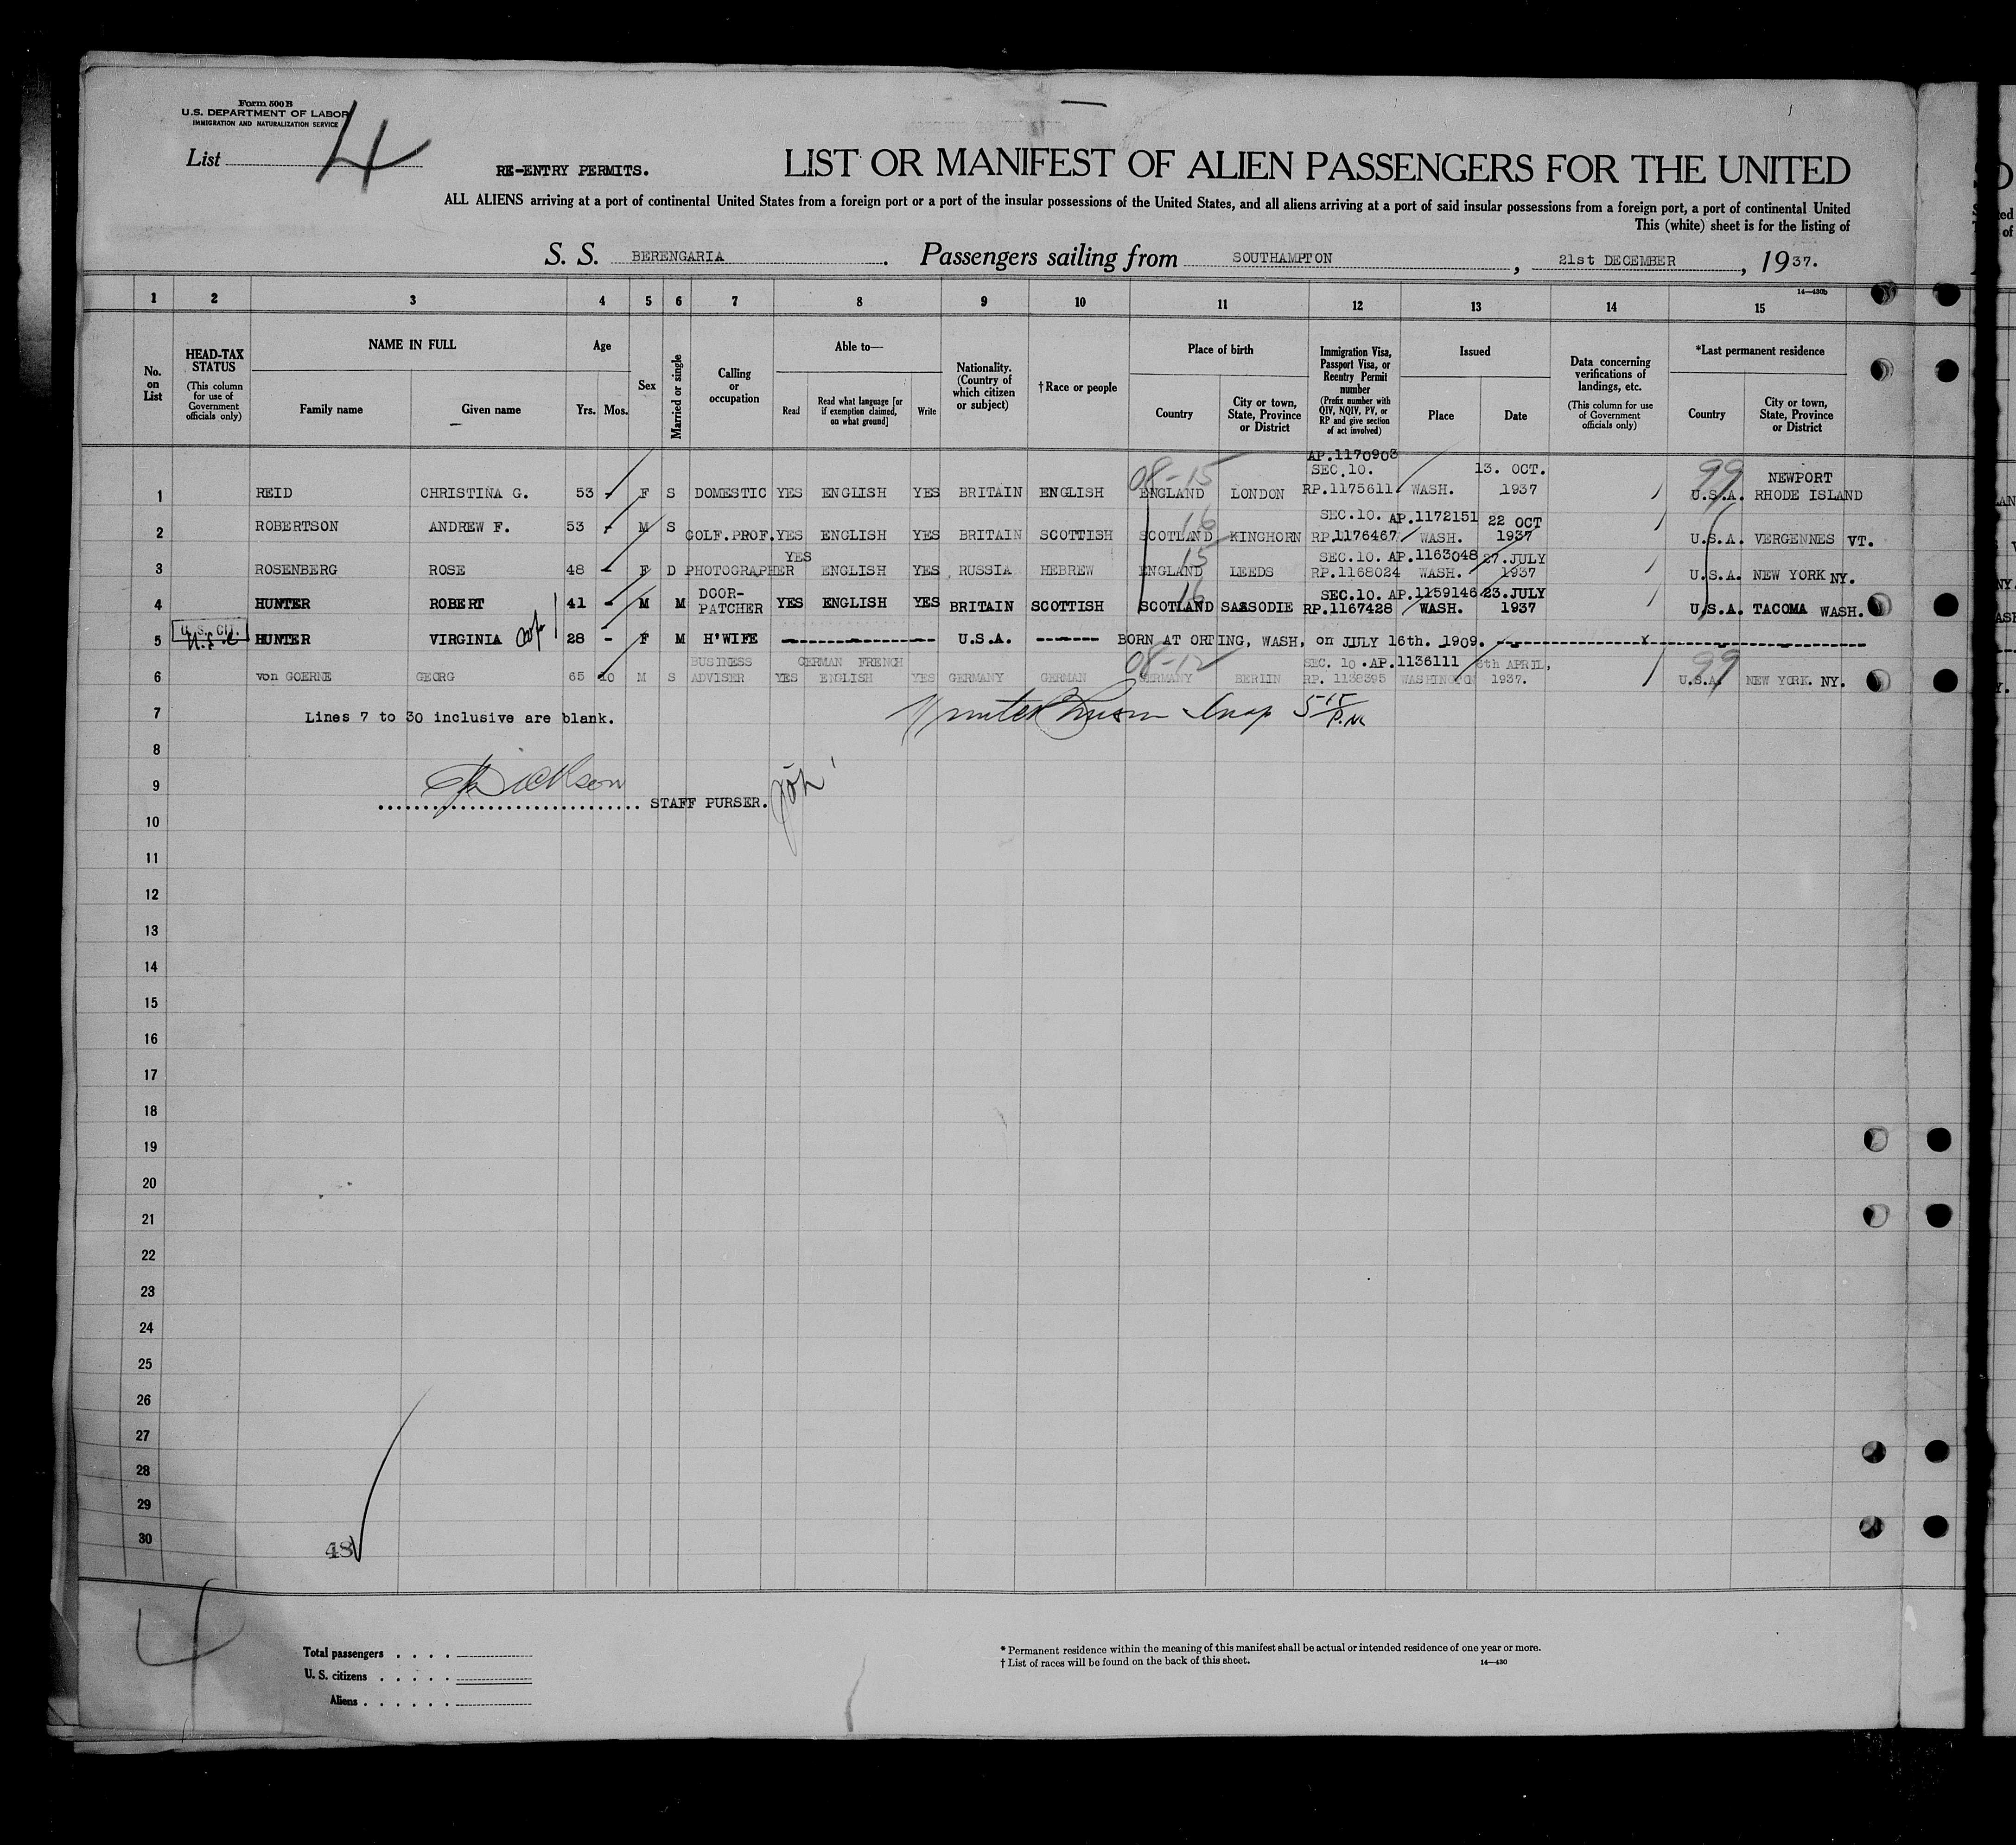 Form 500 B
U.S. DEPARTMENT OF LABOR
IMMIGRATION AND NATURALIZATION SERVICE
List 4
RE-ENTRY PERMITS.
LIST OR MANIFEST OF ALIEN PASSENGERS FOR THE UNITED
ALL ALIENS arriving at a port of continental United States from a foreign port or a port of the insular possessions of the United States, and all aliens arriving at a port of said insular possessions from a foreign port, a port of continental United
This (white) sheet is for the listing of
S. S. BERENGARIA. Passengers sailing from SOUTHAMPTON, 21st DECEMBER, 1937.
14—430b
1 2 3 4 5 6 7 8 9 10 11 12 13 14 15
No. on List
HEAD-TAX STATUS (This column for use of Government officials only)
NAME IN FULL Family name Given name
Age Yrs. Mos.
Sex
Married or single
Calling or occupation
Able to— Read Read what language [or if exemption claimed, on what ground] Write
Nationality. (Country of which citizen or subject)
† Race or people
Place of birth Country City or town, State, Province or District
Immigration Visa, Passport Visa, or Reentry Permit number (Prefix number with QIV, NQIV, PV, or RP and give section of act involved)
Issued Place Date
Data concerning verifications of landings, etc. (This column for use of Government officials only)
*Last permanent residence Country City or town, State, Province or District
AP.1170903
08-15 SEC.10. 13. OCT. 99 NEWPORT
1 REID CHRISTINA G. 53 - F S DOMESTIC YES ENGLISH YES BRITAIN ENGLISH ENGLAND LONDON RP.1175611 WASH. 1937 U.S.A. RHODE ISLAND
16 SEC.10. AP.1172151 22 OCT
2 ROBERTSON ANDREW F. 53 - M S GOLF.PROF. YES ENGLISH YES BRITAIN SCOTTISH SCOTLAND KINGHORN RP.1176467 WASH. 1937 U.S.A. VERGENNES VT.
YES 15 SEC.10. AP.1163048 27.JULY
3 ROSENBERG ROSE 48 - F D PHOTOGRAPHER ENGLISH YES RUSSIA HEBREW ENGLAND LEEDS RP.1168024 WASH. 1937 U.S.A. NEW YORK NY.
DOOR- 16 SEC.10. AP.1159146 23.JULY
4 HUNTER ROBERT 41 - M M PATCHER YES ENGLISH YES BRITAIN SCOTTISH SCOTLAND SASSODIE RP.1167428 WASH. 1937 U.S.A. TACOMA WASH.
U.S. CIT.
5 HUNTER VIRGINIA 28 - F M H'WIFE U.S.A. BORN AT ORTING, WASH, on JULY 16th. 1909.
BUSINESS GERMAN FRENCH 08-12 SEC. 10 .AP.1136111 6th APRIL, 99
6 von GOERNE GEORG 65 10 M S ADVISER YES ENGLISH YES GERMANY GERMAN GERMANY BERLIN RP. 1138395 WASHINGTON 1937. U.S.A. NEW YORK. NY.
7 Lines 7 to 30 inclusive are blank. 5 15 P.M
8
9 STAFF PURSER.
10
11
12
13
14
15
16
17
18
19
20
21
22
23
24
25
26
27
28
29
30
48
4
Total passengers
U. S. citizens
Aliens
* Permanent residence within the meaning of this manifest shall be actual or intended residence of one year or more.
† List of races will be found on the back of this sheet. 14—430